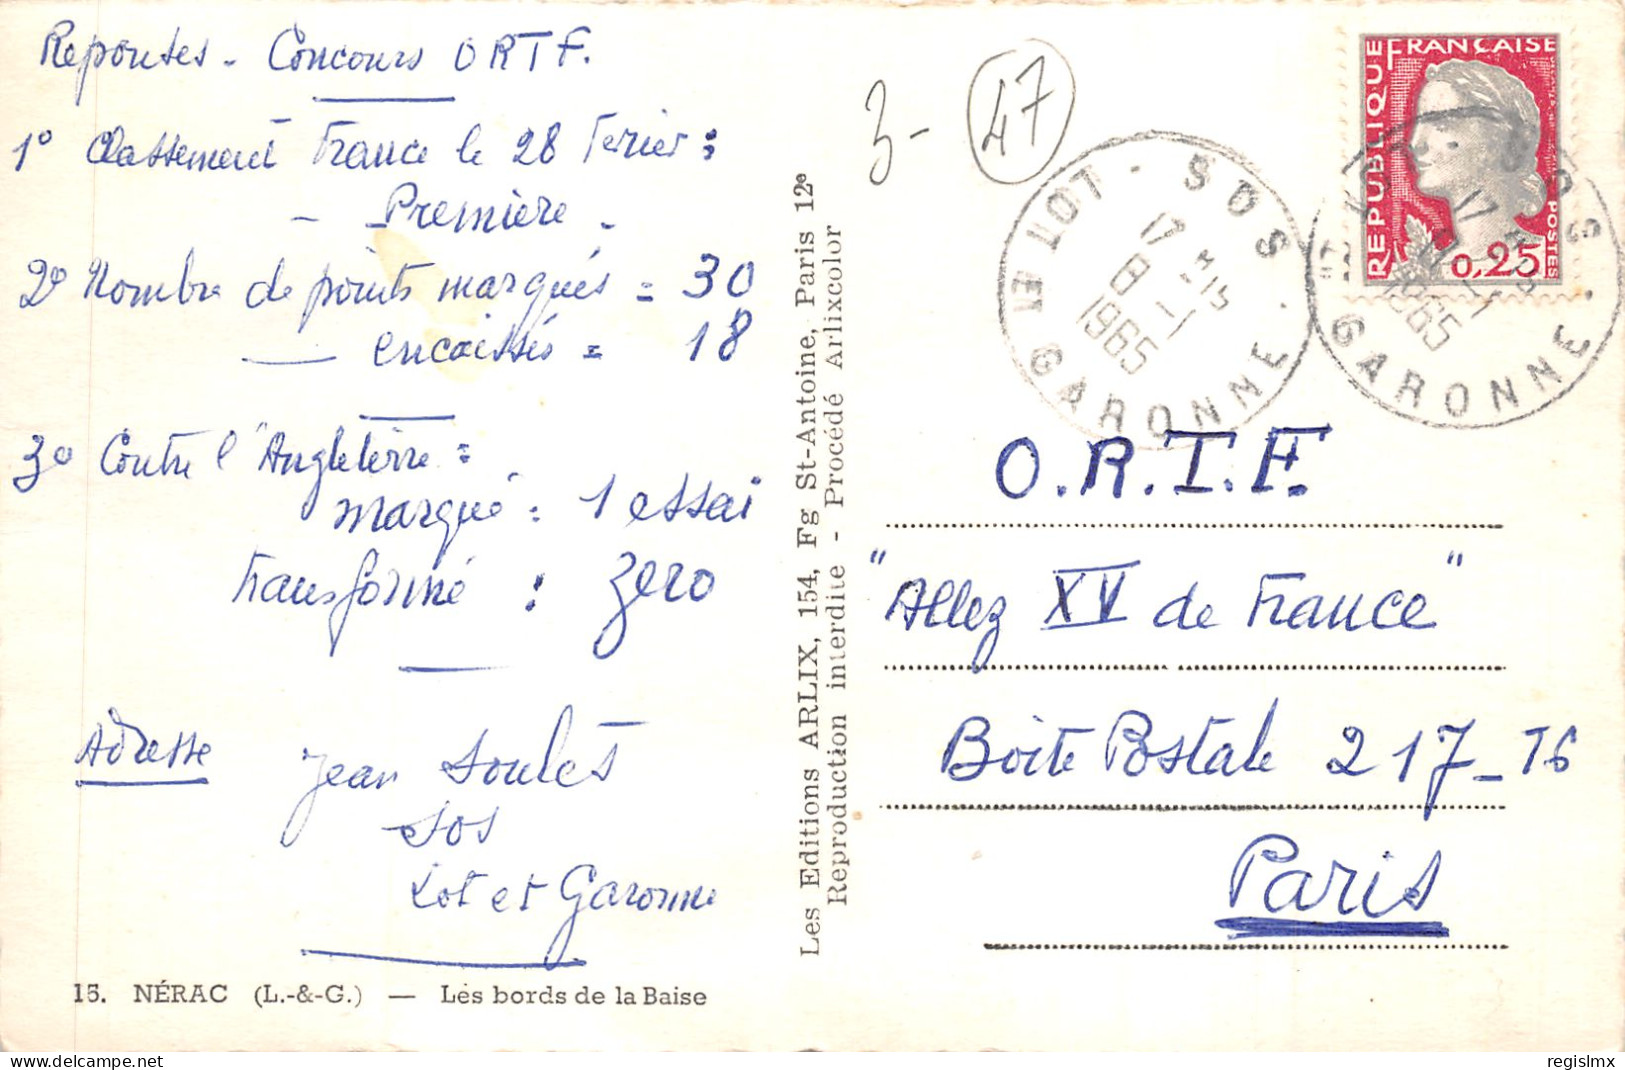 Reponses - Concours ORTF.
1° Classement France le 28 Ferier :
- Première -
2° Nombre de points marqués = 30
— encaissés = 18
3° Contre l'Angleterre =
marqué : 1 essai
transformé : Zero
Adresse Jean Soulès
Sos
Lot et Garonne
15. NÉRAC (L.-&-G.) — Les bords de la Baise
Les Editions ARLIX, 154, Fg St-Antoine, Paris 12e
Reproduction interdite - Procédé Arlixcolor
3- 47
SOS
17 H 15
8 - 1
1965
LOT ET GARONNE
REPUBLIQUE FRANÇAISE
0,25
POSTES
SOS
17 H 15
1965
GARONNE
O.R.T.F.
"Allez XV de France"
Boite Postale 217-16
Paris
regislmx